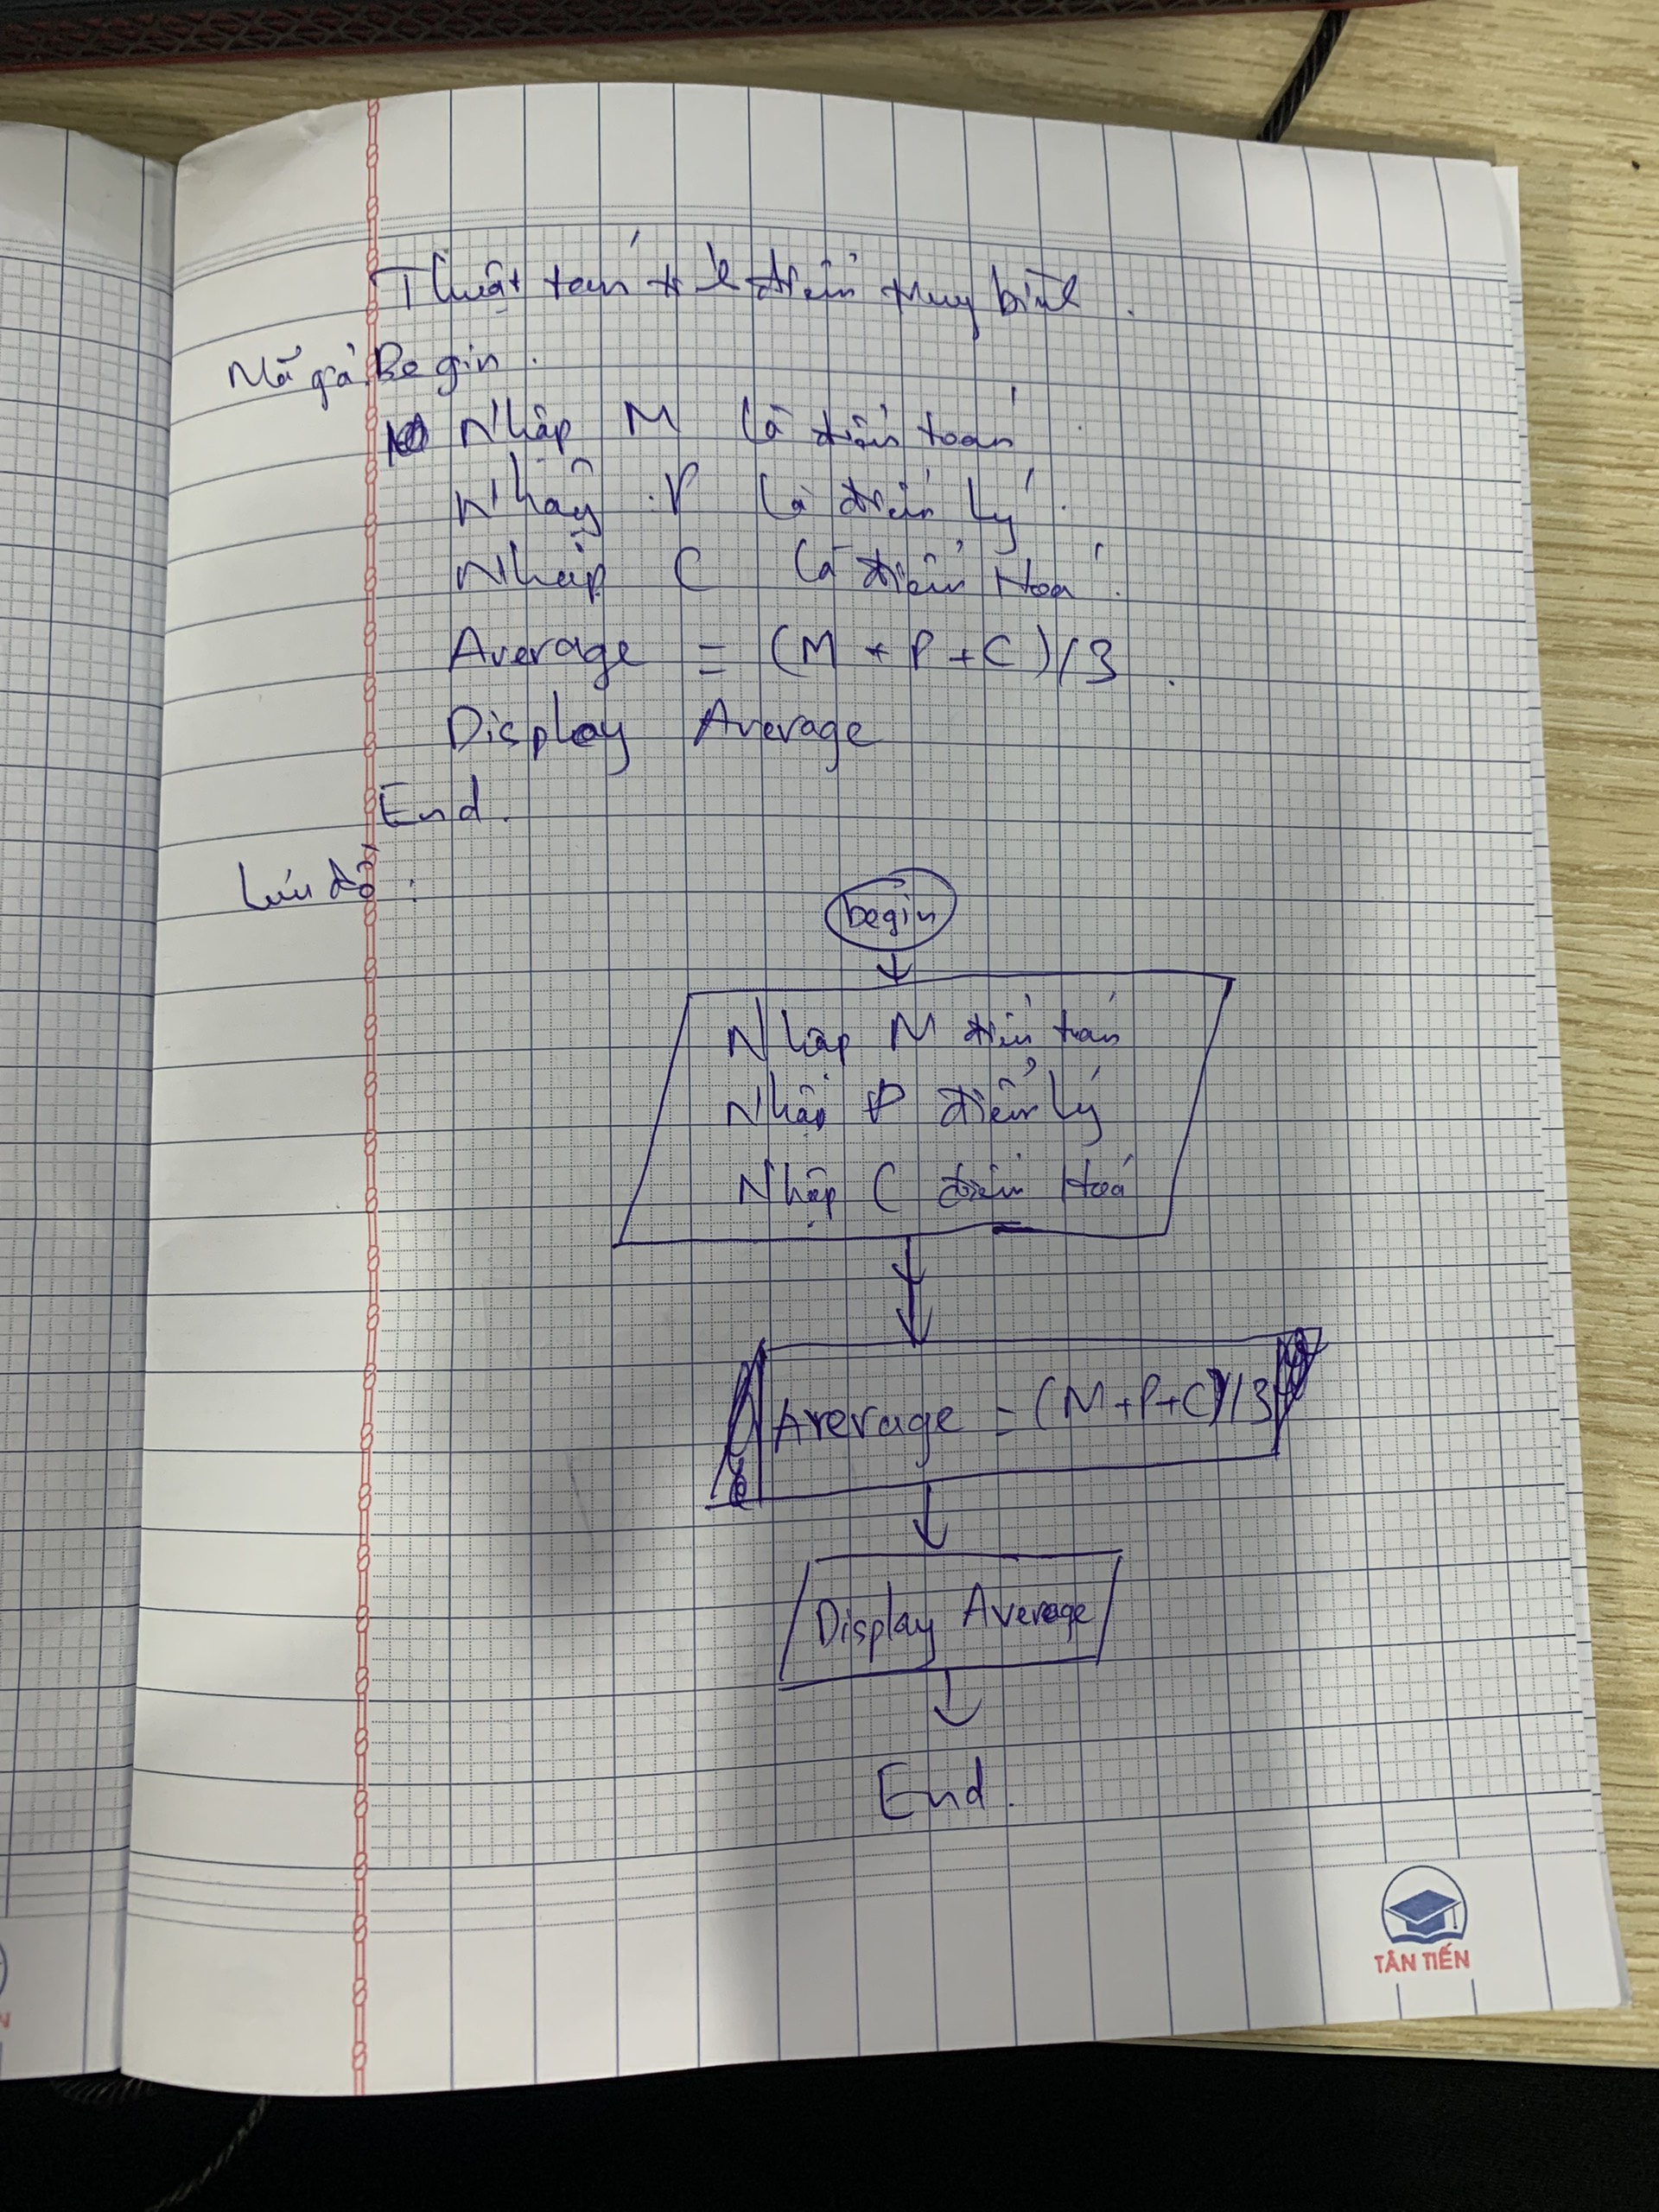 Thuật toán tính điểm trung bình.
Mã giả: Begin.
Nhập M là điểm toán.
Nhập P là điểm Lý.
Nhập C là điểm Hoá.
Average = (M + P + C)/3.
Display Average
End.
Lưu đồ:
begin
Nhập M điểm toán
Nhập P điểm Lý
Nhập C điểm Hoá
Average = (M+P+C)/3
Display Average
End.
TÂN TIẾN